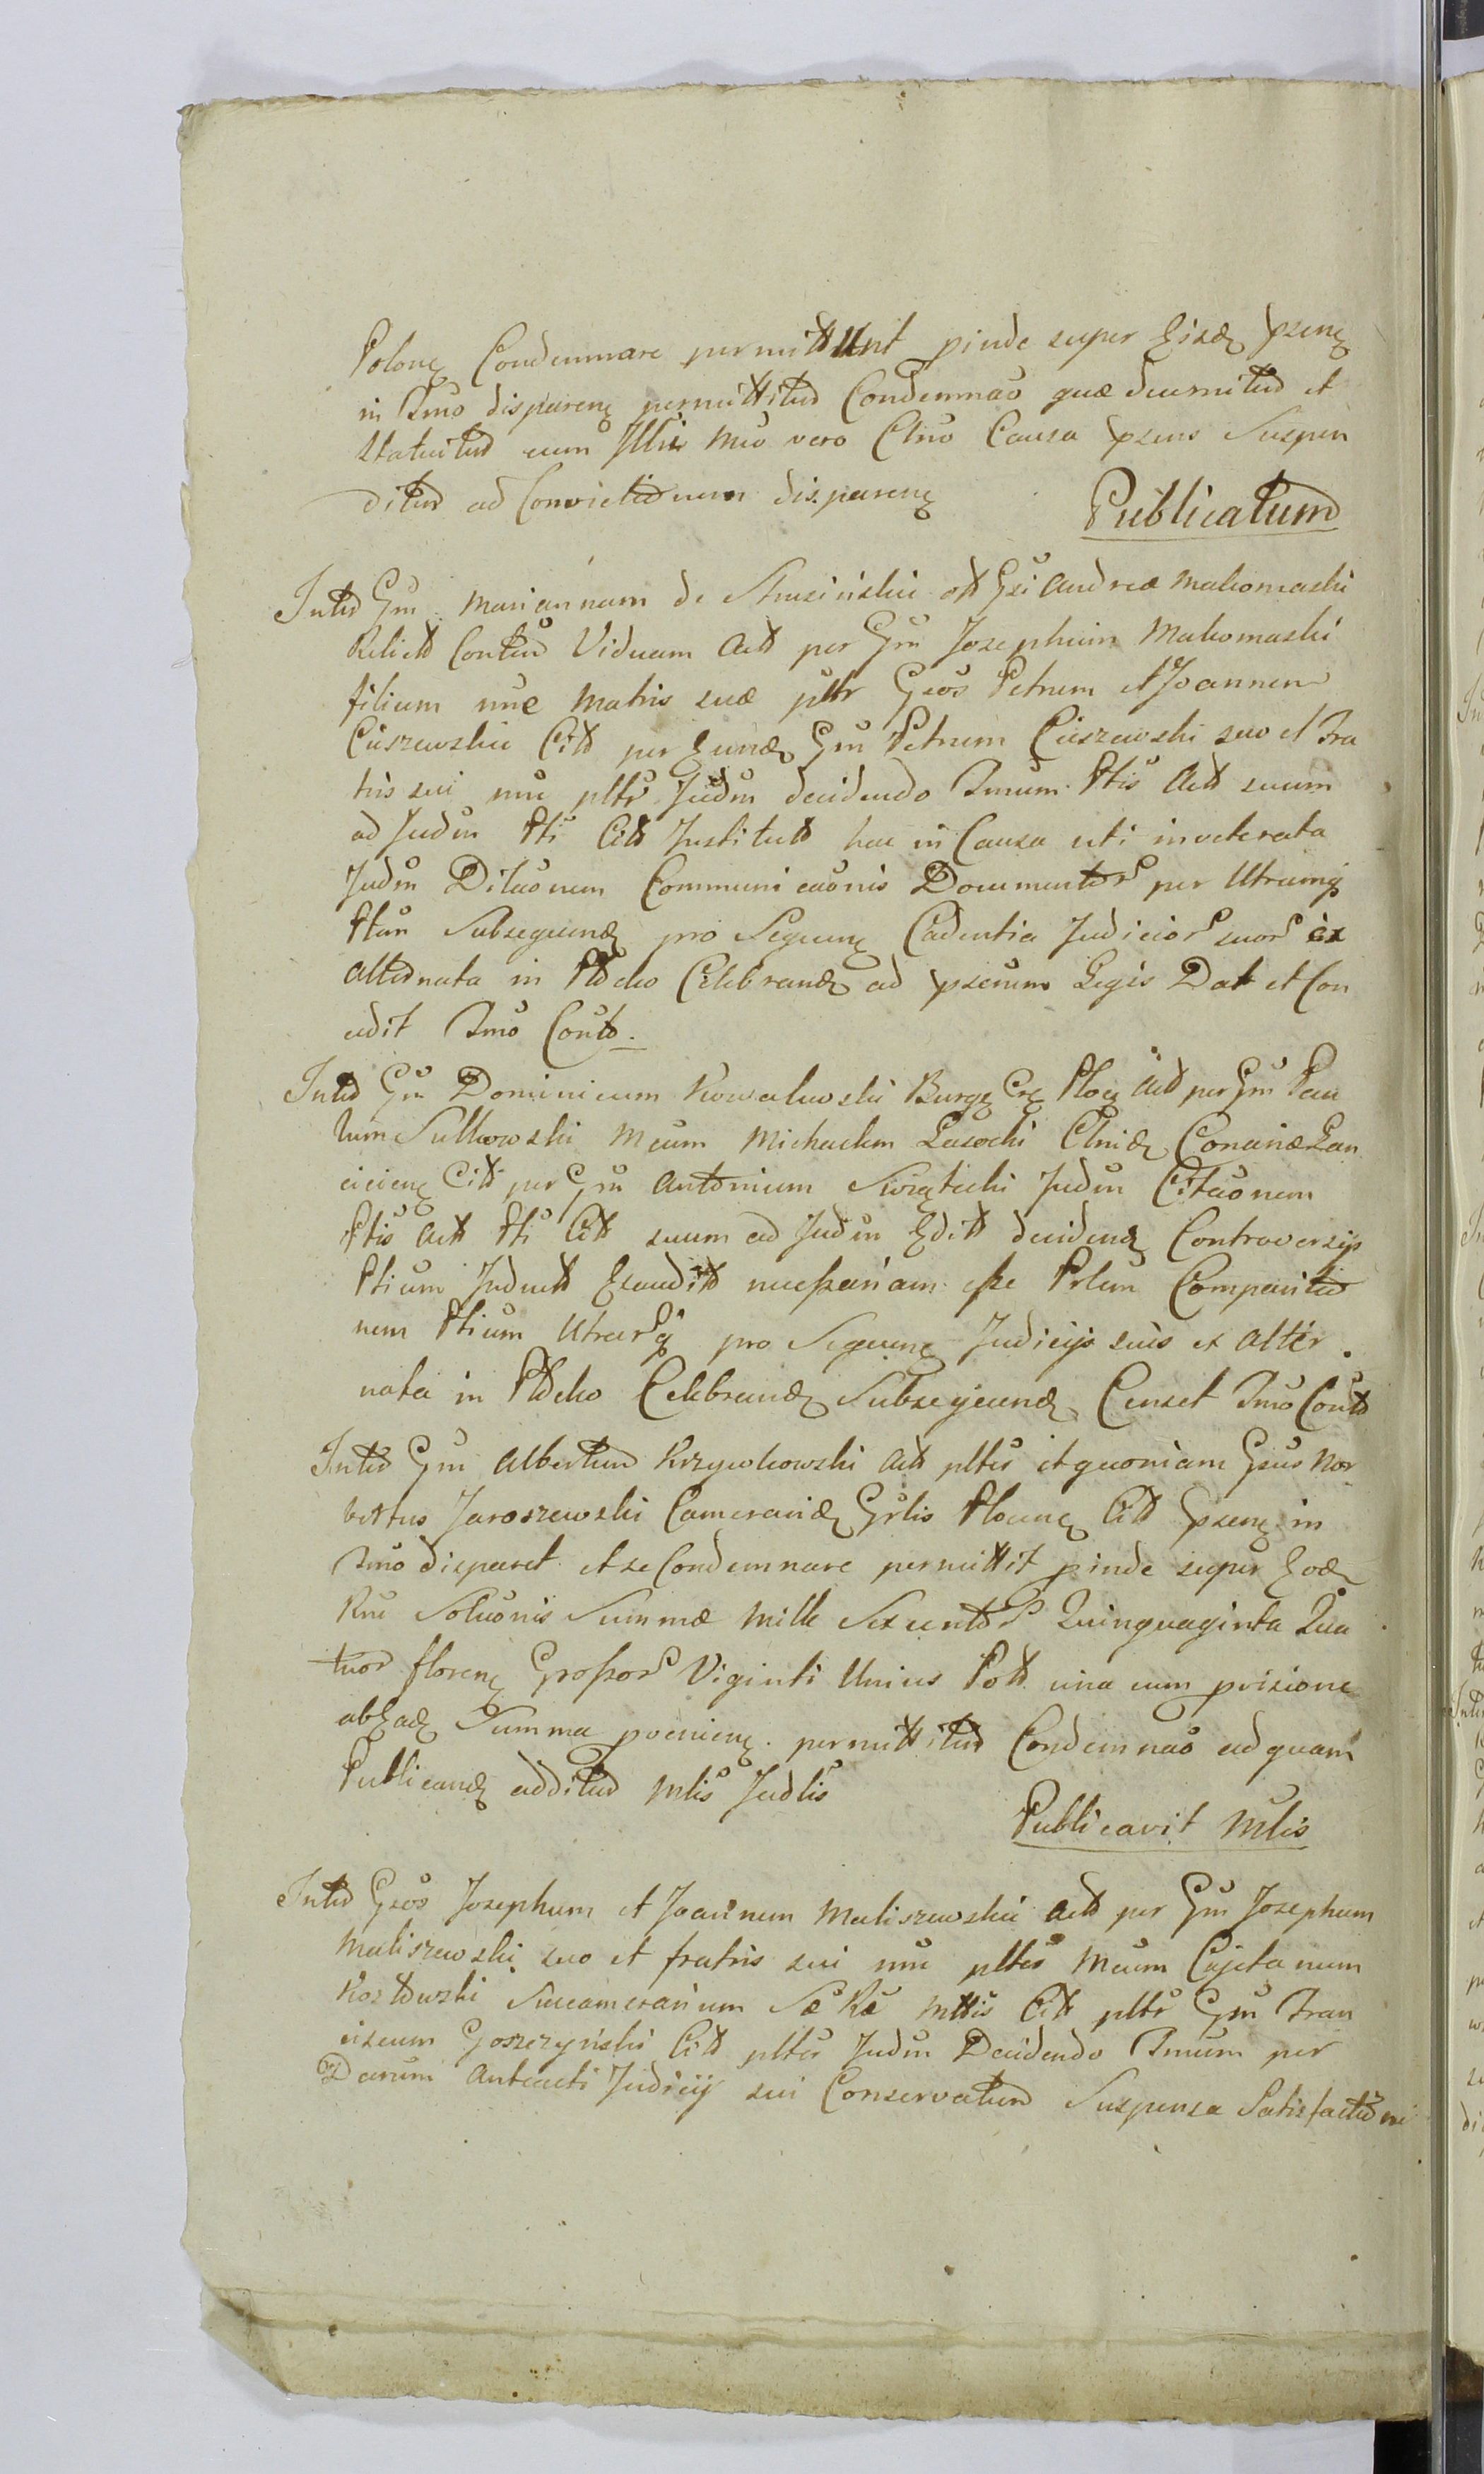 Polonę Condemnare permittunt pinde super Eisdę pzenę
in Tmo disparenę permittitur Condemnao quæ decernitur et
Statuitur cum Mco vero Clno Causa pzens Suspen
ditur ad Convictionem disparenę
Publicatum
Inter Gm Mariannam de Strusińskie Gsi Andreæ Makomaski
Relictt Conter Viduam Actt per Gm Josephum Makomaski
filium nne Matris suæ pltr Gsos Petrum et Joannem
Cieszewskie Citt per Eundę Gm Petrum Cieszewski suo et Fra
tris sui nne pltr Judm decidendo Tmum Ptis Actt suum
ad Judm Pti Citt Institutt hac in Causa uti inveterata
Judm Dilaonem Communicaonis Documentor per Utramq
Ptem Subsequendę pro Sequenę Cadentia Judicior suor ex
Alternata in Płocko Celebrandę ad pzerum Legis Dat et Con
cedit Tmo Contto.
Inter Gm Dominicum Kowalewski Burgę Crę Płocę Actt per Gm Pau
lum Sulkowski Mcum Michaelem Lasocki Clnidę Conariæ Lan
cicienę Citt per Gm Antonium Swięticki Judm Citaonem
Ptis Actt Pti Citt suum ad Judm Editt decidendę Controversijs
Ptium Inductt Exauditt necessariam esse Prlem Comparitio
nem Ptium Utrarq pro Sequenę Judicijs suis ex Alter
nata in Płocko Celebrandę Subsequendę Censet Tmo Contto
Inter Gm Albertum Krzywkowski Actt plter et quoniam Gsus Nor
bertus Jaroszewski Cameraridę Grlis Płocenę Citt pzenę in
Tmo disparet et se Condemnare permittit pinde super Eodę
Rne Soluonis Summæ Mille Sexcentor Quinquaginta Qua
tuor florenę Grossor Viginti Unius Pott una cum provisione
ab Eadę Summa pvenienę permittitur Condemnao ad quam
Publicandę additur Mlis Judlis
Publicavit Mlis
Inter Gsos Josephum et Joannem Maliszewskie Actt per Gm Josephum
Maliszewski suo et fratris sui nne plter Mcum Cajetanum
Kostowski Succamerarium Sæ Ræ Mttis Citt pltr Gm Fran
ciscum Goszczyński Citt plter Judm Decidendo Tmum per
Decrum Anteacti Judicij sui Conservatum Suspensa Satisfactione